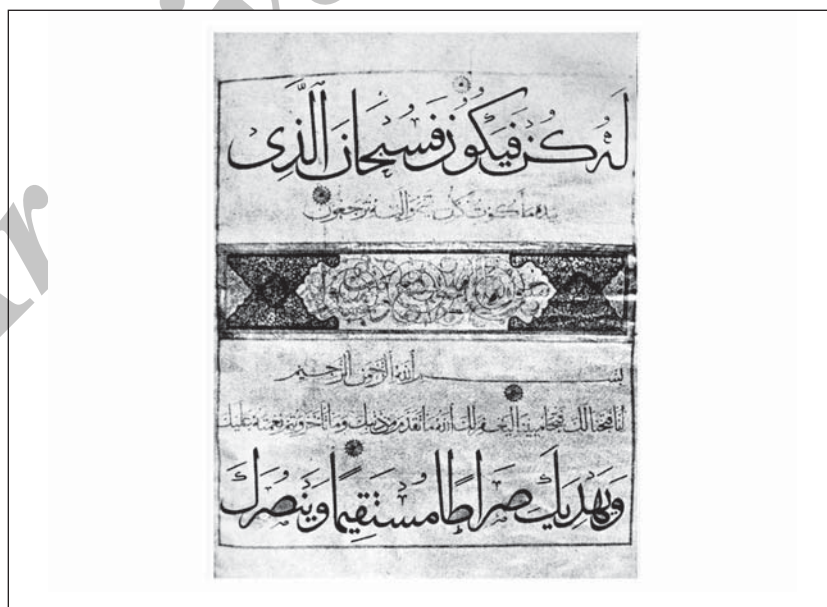 لَهُ كُنْ فَيَكُونُ فَسُبْحَانَ الَّذِي
بِيَدِهِ مَلَكُوتُ كُلِّ شَيْءٍ وَإِلَيْهِ تُرْجَعُونَ
بِسْمِ اللَّهِ الرَّحْمَنِ الرَّحِيمِ
إِنَّا فَتَحْنَا لَكَ فَتْحًا مُبِينًا لِيَغْفِرَ لَكَ اللَّهُ مَا تَقَدَّمَ مِنْ ذَنْبِكَ وَمَا تَأَخَّرَ وَيُتِمَّ نِعْمَتَهُ عَلَيْكَ
وَيَهْدِيَكَ صِرَاطًا مُسْتَقِيمًا وَيَنْصُرَكَ